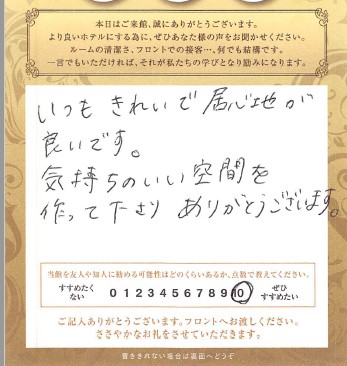 本日はご来館、誠にありがとうございます。
より良いホテルにする為に、ぜひあなた様の声をお聞かせください。
ルームの清潔さ、フロントでの接客…、何でも結構です。
一言でもいただければ、それが私たちの学びとなり励みになります。
いつも きれいで 居心地が
良いです。
気持ちのいい空間を
作って下さり ありがとうございます。
当館を友人や知人に勧める可能性はどのくらいあるか、点数で教えてください。
すすめたく
ない
0 1 2 3 4 5 6 7 8 9 10
ぜひ
すすめたい
ご記入ありがとうございます。フロントへお渡しください。
ささやかなお礼をさせていただきます。
書ききれない場合は裏面へどうぞ